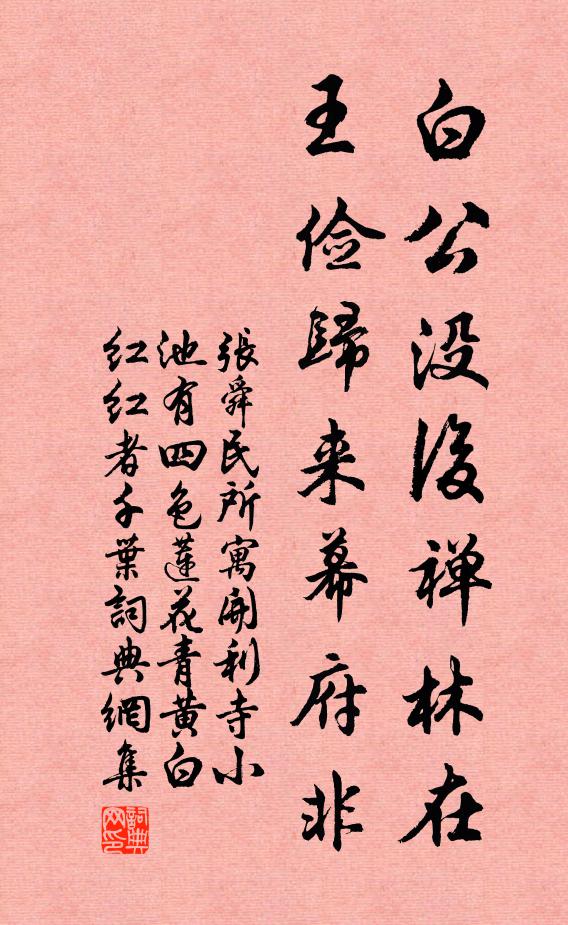 白公没後禅林在
王儉歸来幕府非
張舜民所寓開利寺小
池有四色蓮花青黄白
红红者千葉詞典網集
詞典网印